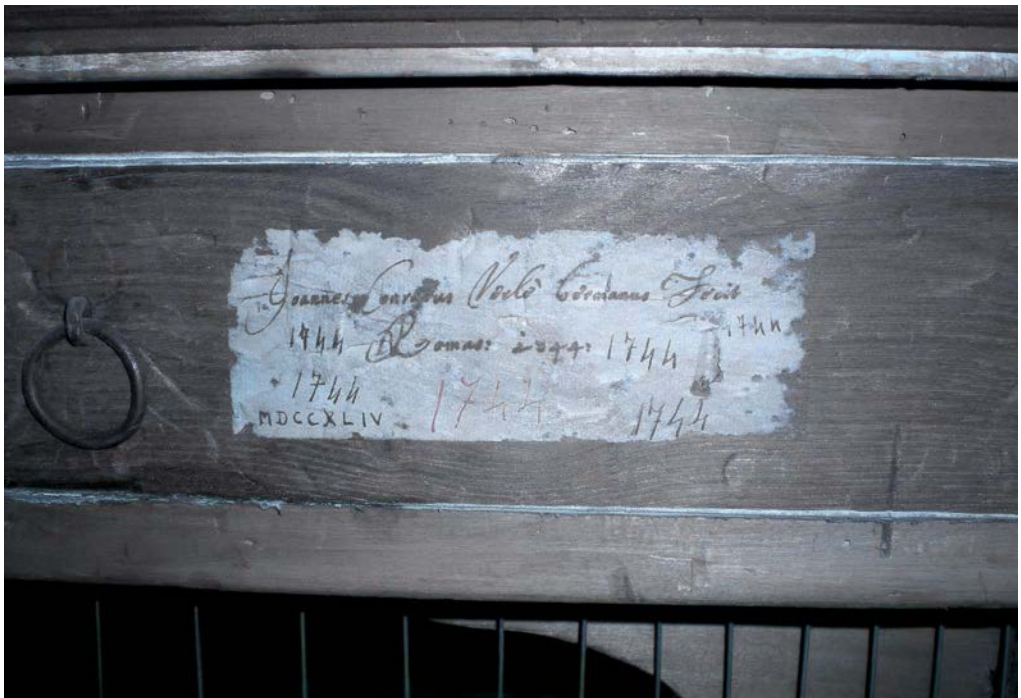 Joannes Conradus Verlè Germanus Fecit
1744 Romae: 1744 1744
1744 1744
MDCCXLIV 1744